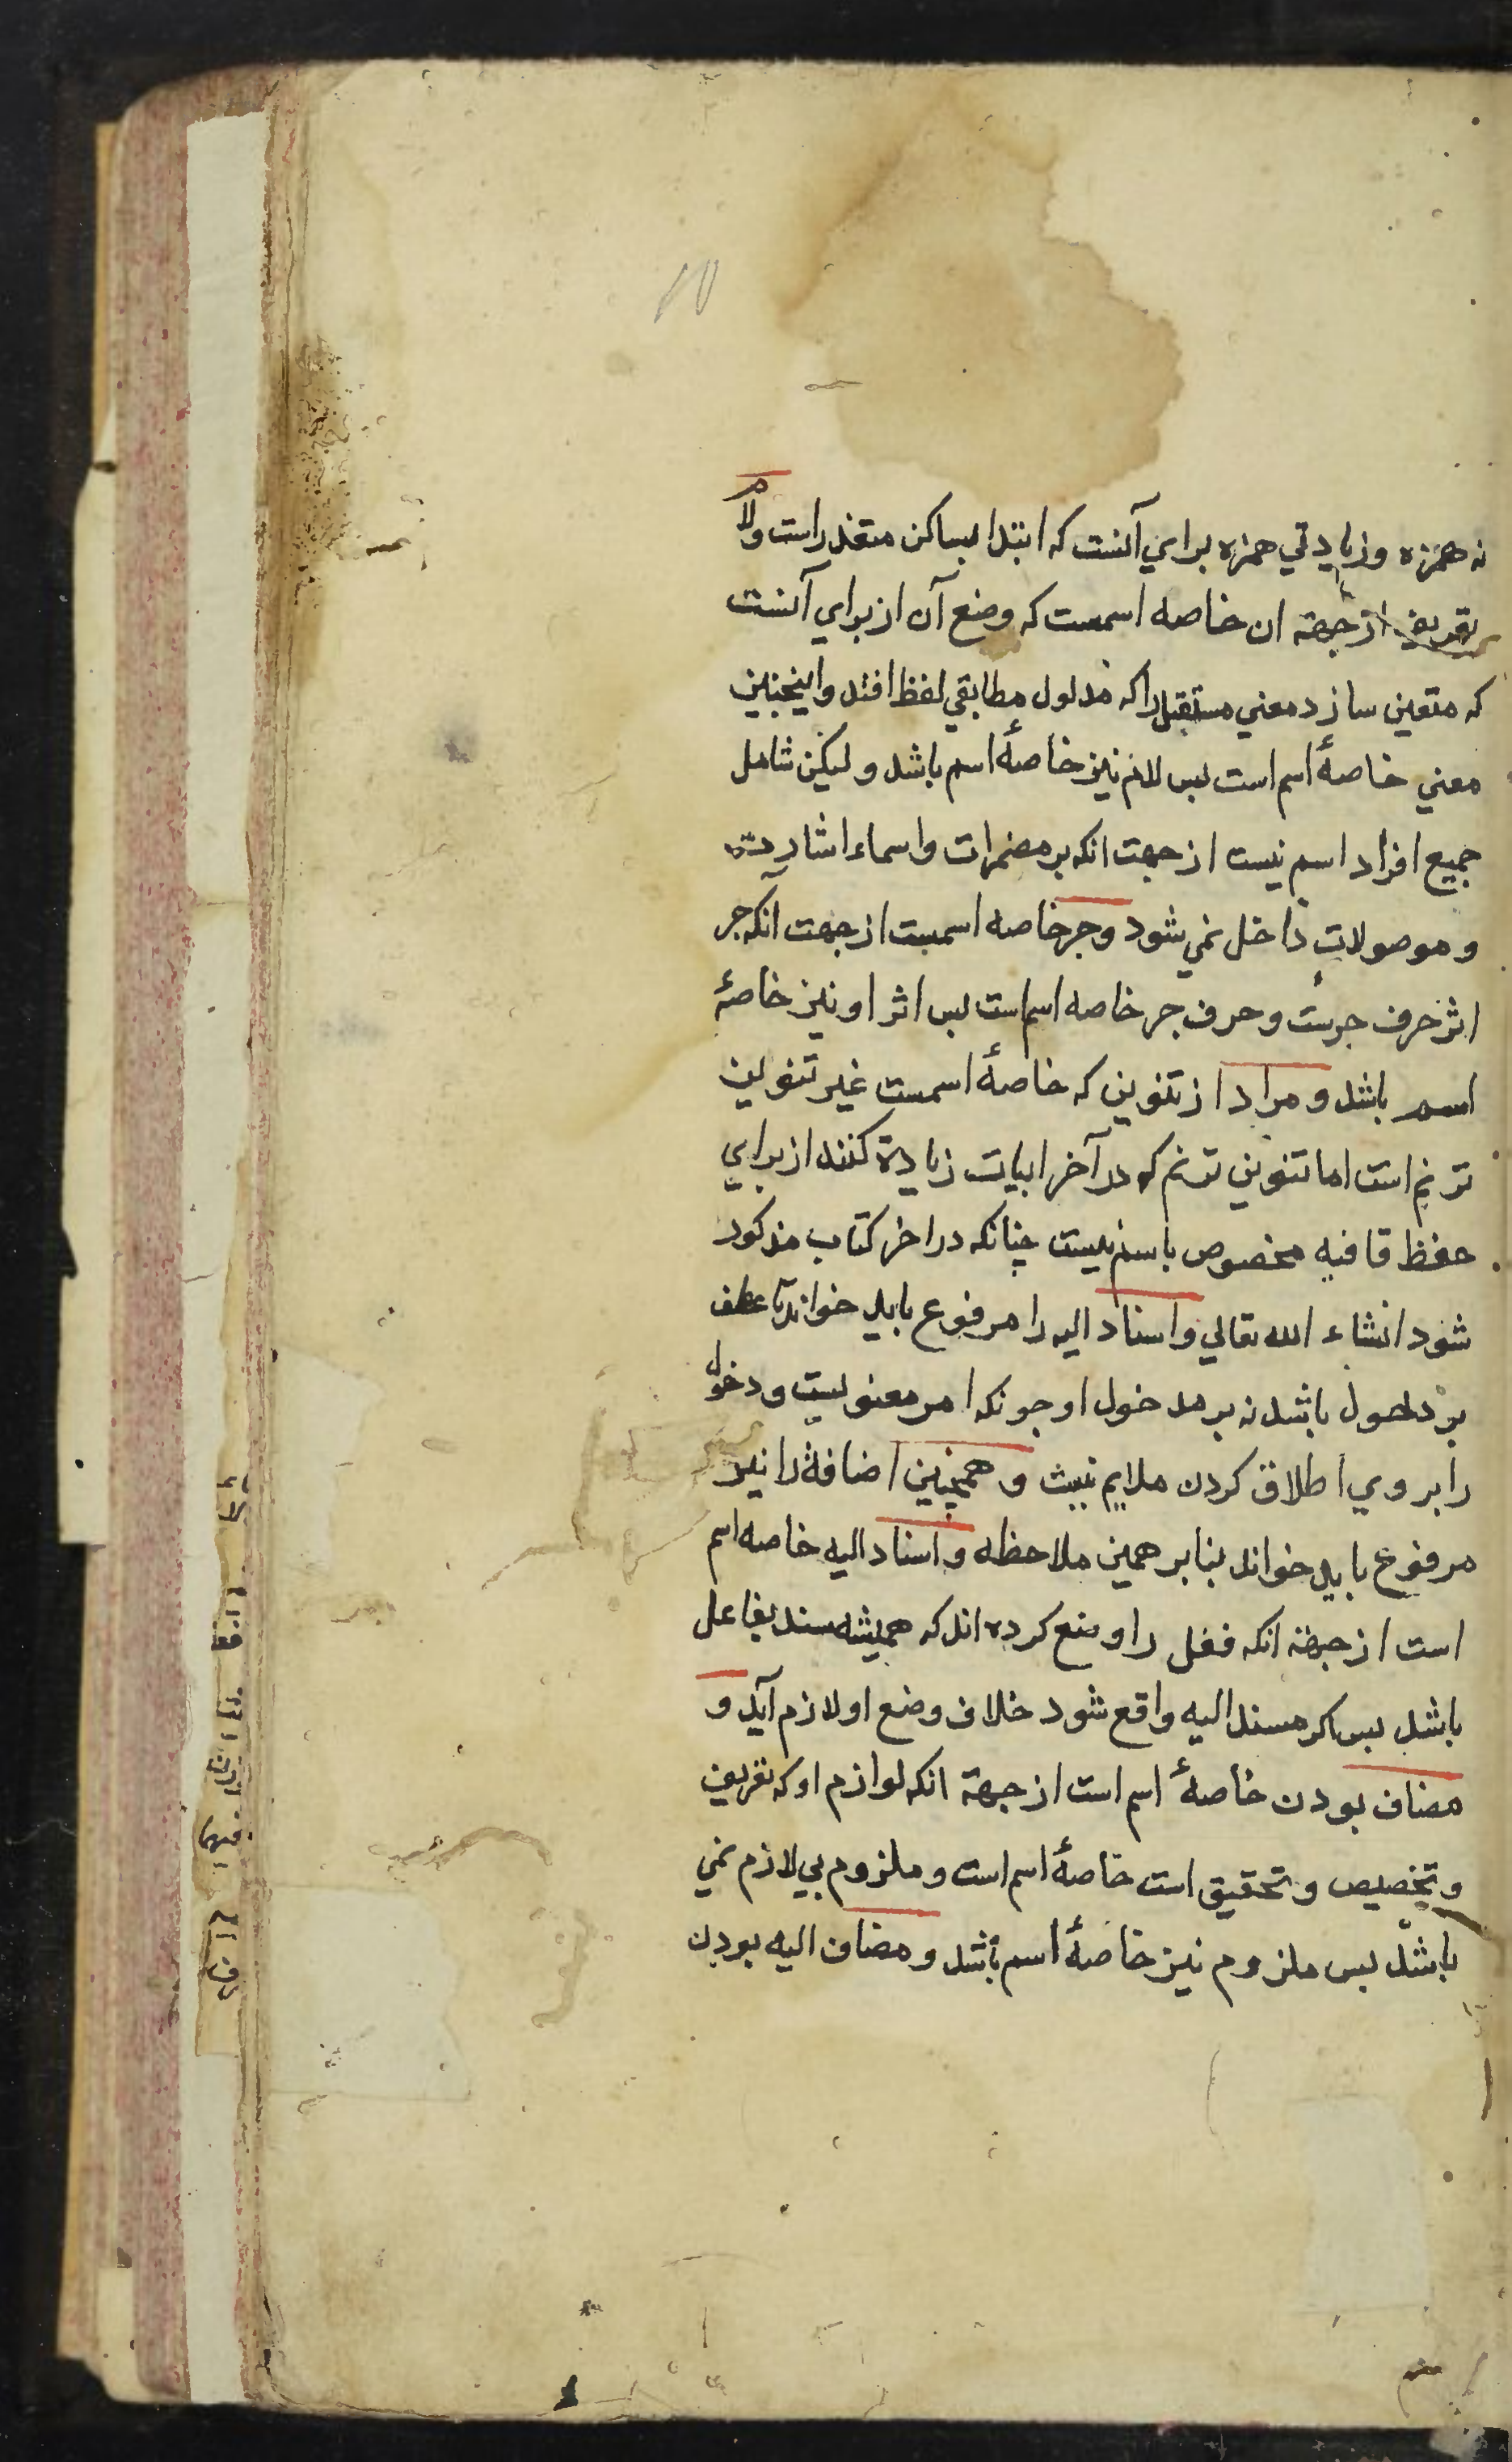 نه همزه وزیادتي همزه براي آنست که ابتدا بساکن متعذراست ولام
تعریف ازجهته ان خاصه اسمست که وضع آن ازبراي آنست
که متعین سازد معني مستقبل راکه مدلول مطابقي لفظ افتد واینچنین
معني خاصهٔ اسم است بس لام نیز خاصهٔ اسم باشد ولیکن شامل
جمیع افراد اسم نیست ازجهت انکه برمضمرات واسماء اشارت
وموصولات داخل نمي شود وجر خاصه اسمست ازجهت انکه جر
اثرحرف جرست وحرف جر خاصه اسم است بس اثر او نیز خاصهٔ
اسم باشد ومراد از تنوین که خاصهٔ اسمست غیر تنوین
ترنم است اما تنوین ترنم که درآخر ابیات زیادة کنند از براي
حفظ قافیه مخصوص باسم نیست چنانکه دراخر کتاب مذکور
شود انشاء الله تعالي واسناد الیه را مرفوع باید خواند تا عطف
بر دخول باشد نه بر مدخول او جونکه امر معنویست ودخول
را بروي اطلاق کردن ملایم نیست وهمچنین اضافة را نیز
مرفوع باید خواند بنابر همین ملاحظه واسناد الیه خاصه اسم
است ازجهة انکه فعل را وضع کرده اند که همیشه مسند بفاعل
باشد بس اکر مسند الیه واقع شود خلاف وضع او لازم آید و
مضاف بودن خاصهٔ اسم است ازجهة انکه لوازم او که تعریف
وتخصیص وتحقیق است خاصهٔ اسم است وملزوم بي لازم نمي
باشد بس ملزوم نیز خاصهٔ اسم باشد ومضاف الیه بودن